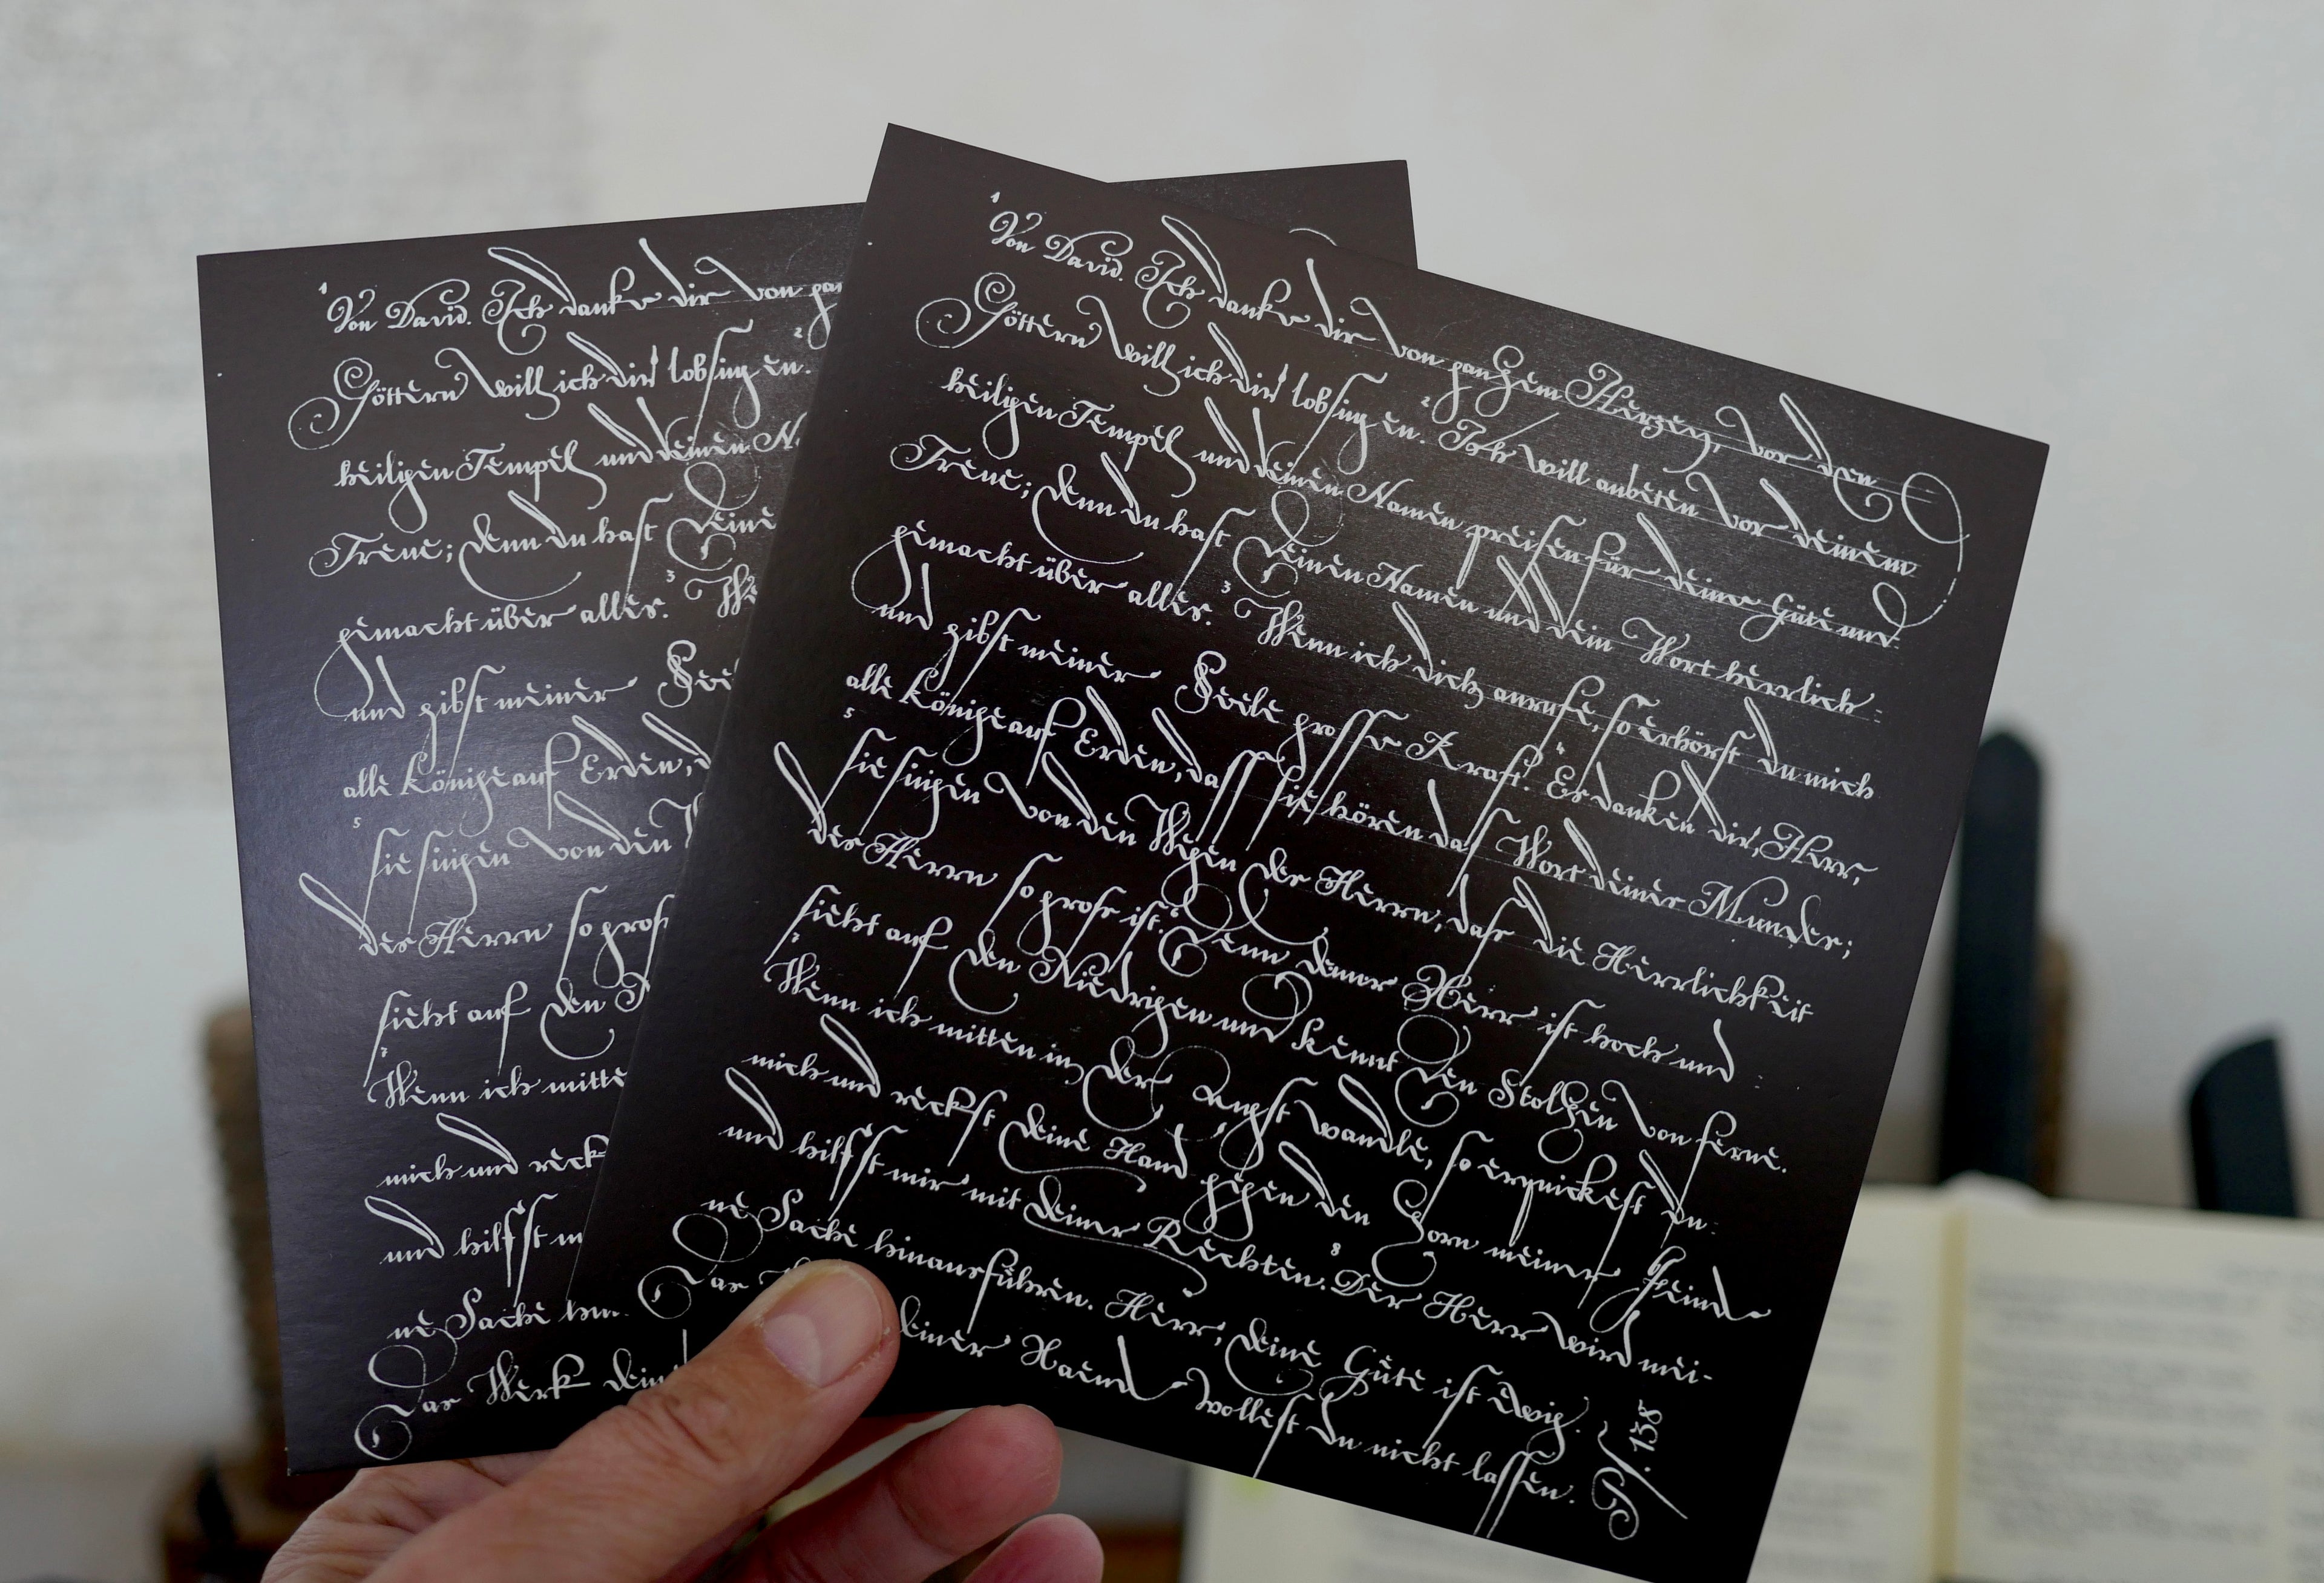 1
Von David. Ich danke dir von gan
2
Göttern will ich dir lobsingen.
heiligen Tempel und deinen N
Treue; denn du hast deine
3
gemacht über alles. We
und gibst meiner See
alle Könige auf Erden, d
5
sie singen von den
des Herrn so gros
sieht auf den
7
Wenn ich mitte
mich und reck
und hilfst m
ne Sache hin
Das Werk dein
1
Von David. Ich danke dir von ganzem Herzen, vor den
2
Göttern will ich dir lobsingen. Ich will anbeten vor deinem
heiligen Tempel und deinen Namen preisen für deine Güte und
Treue; denn du hast deinen Namen und dein Wort herrlich
3
gemacht über alles. Wenn ich dich anrufe, so erhörst du mich
4
und gibst meiner Seele grosse Kraft. Es danken dir, Herr,
alle Könige auf Erden, dass sie hören das Wort deines Mundes;
5
sie singen von den Wegen des Herrn, dass die Herrlichkeit
6
des Herrn so gross ist. Denn der Herr ist hoch und
sieht auf den Niedrigen und kennt den Stolzen von ferne.
7
Wenn ich mitten in der Angst wandle, so erquickest du
mich und reckst deine Hand gegen den Zorn meiner Feinde
8
und hilfst mir mit deiner Rechten. Der Herr wird mei-
ne Sache hinausführen. Herr, deine Güte ist ewig.
Das deiner Hände wollest du nicht lassen.
Ps. 138